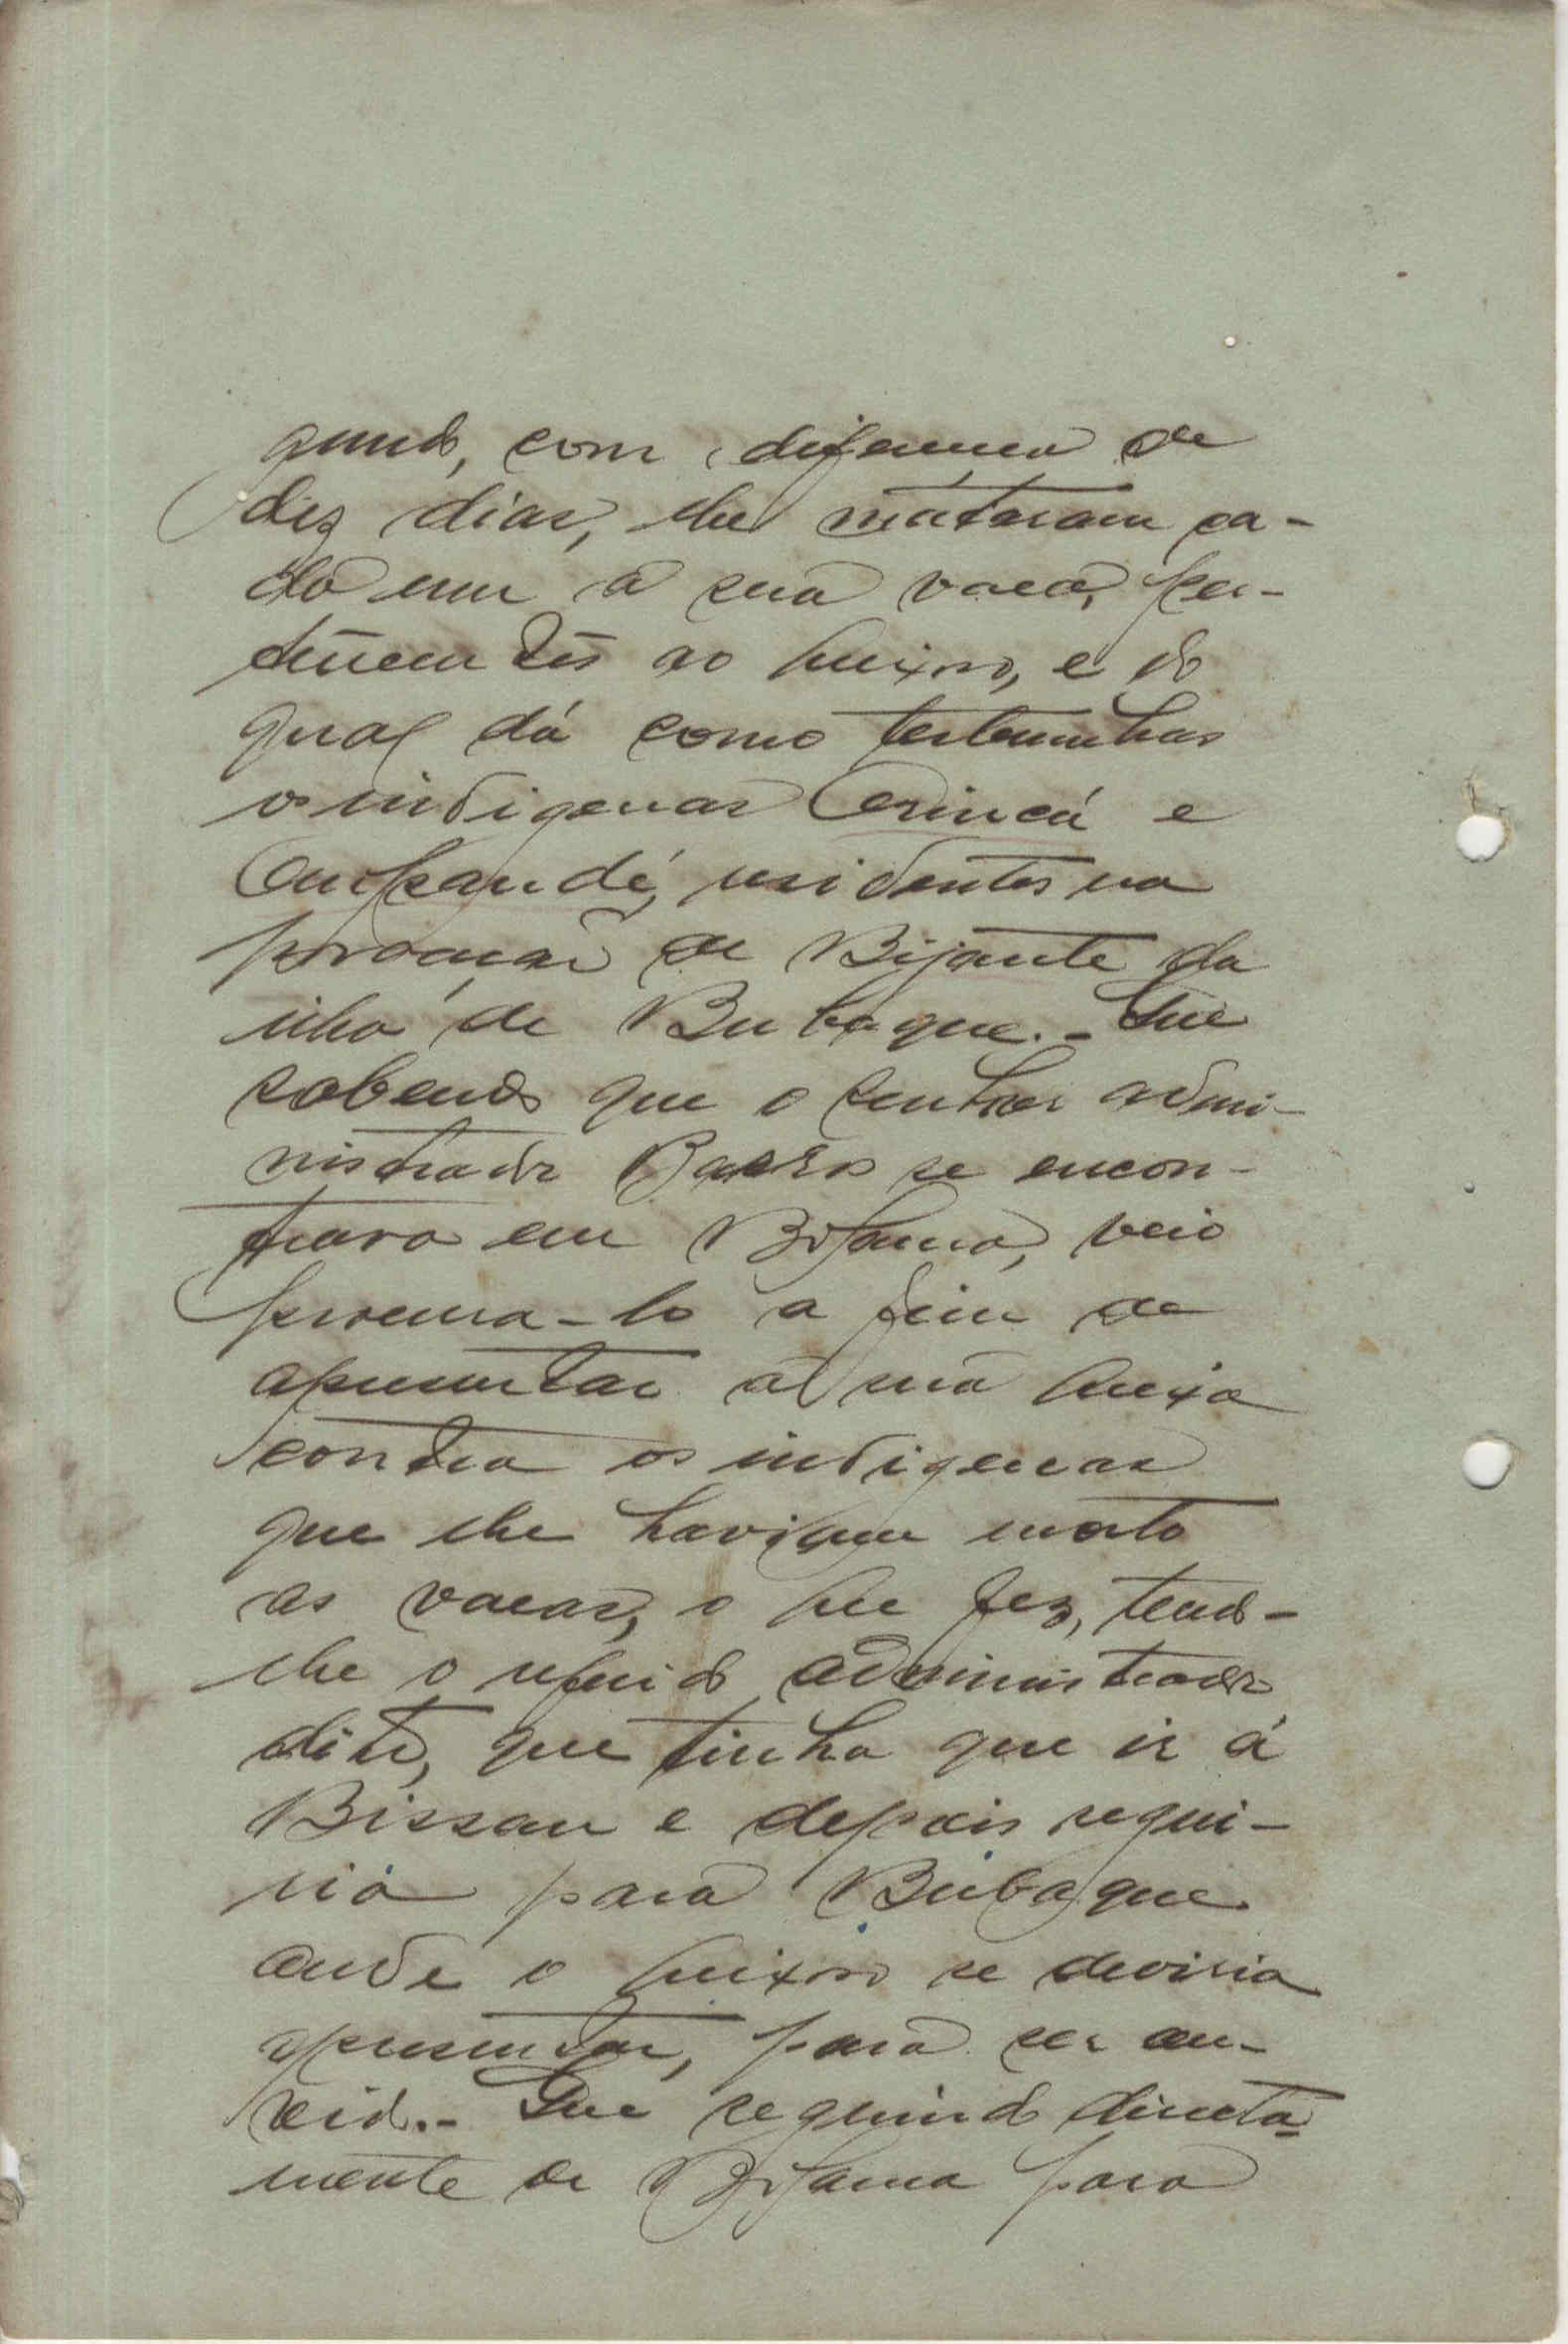 gundo, com diferença de
dez dias, lhe mataram ca-
da um a sua vaca, per-
tencentes ao queixoso, e do
qual dá como testemunhas
os indigenas Orincá e
Ompandé, residentes na
povoação de Bijante da
ilha de Bubaque.- Que
sabendo que o senhor admi-
nistrador Barros se encon-
trava em Bolama, veio
procura-lo a fim de
apresentar a sua queixa
contra os indigenas
que lhe haviam morto
as vacas, o que fez, tendo-
lhe o referido administrador
dito, que tinha que ir á
Bissau e depois segui-
ria para Bubaque
onde o queixoso se deviria
apresentar, para ser ou-
vido.- Que seguindo directa-
mente de Bolama para